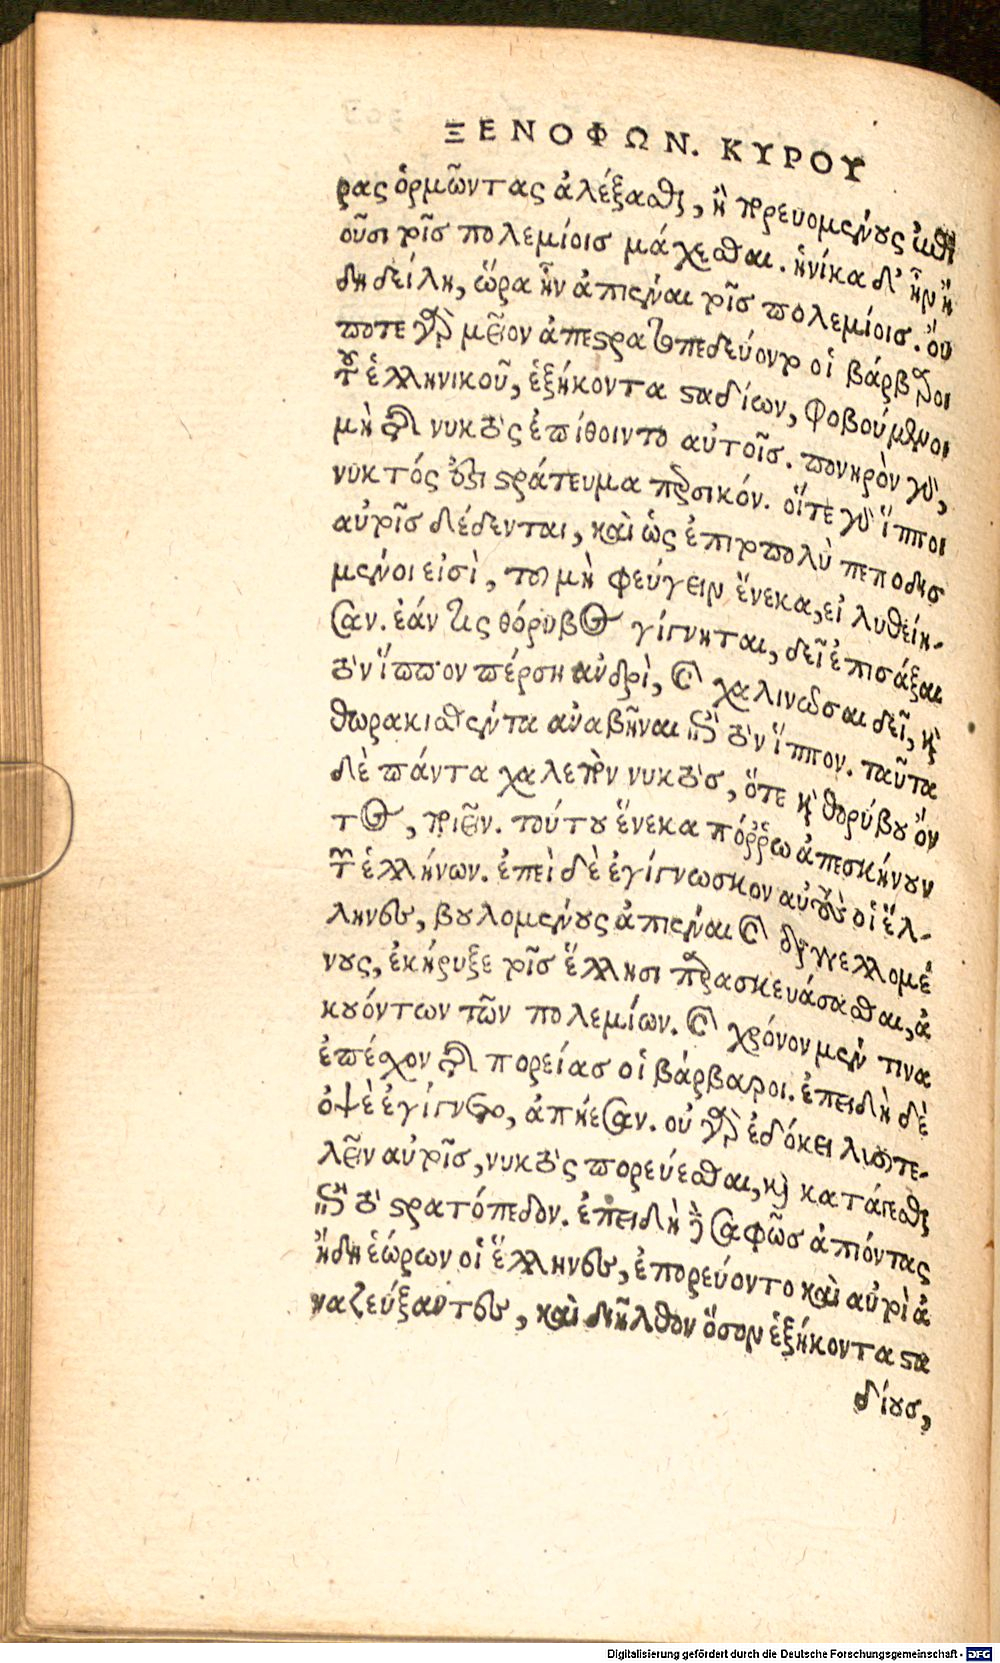 ΞΕΝΟΦΩΝ. ΚΥΡΟΥ
ρας ὁρμῶντας ἀλέξασθαι, ἢ πορευομένους ἐπιθε
οῦσι τοῖς πολεμίοις μάχεσθαι. ἡνίκα δ' ἦν ἤ
δη δείλη, ὥρα ἦν ἀπιέναι τοῖς πολεμίοις. οὔ
ποτε γὰρ μεῖον ἀπεστρατοπεδεύοντο οἱ βάρβαροι
τοῦ ἑλληνικοῦ, ἑξήκοντα σταδίων, φοβούμενοι
μὴ τῆς νυκτὸς ἐπίθοιντο αὐτοῖς. πονηρὸν γὰρ,
νυκτός ἐστι στράτευμα περσικόν. οἵτε γὰρ ἵπποι
αὐτοῖς δέδενται, καὶ ὡς ἐπιτοπολὺ πεποδισ
μένοι εἰσὶ, τοῦ μὴ φεύγειν ἕνεκα, εἰ λυθείη-
σαν. ἐάν τις θόρυβος γίγνηται, δεῖ ἐπισάξαι
τὸν ἵππον πέρσῃ ἀνδρὶ, καὶ χαλινῶσαι δεῖ, καὶ
θωρακισθέντα ἀναβῆναι ἐπὶ τὸν ἵππον. ταῦτα
δὲ πάντα χαλεπὸν νυκτὸς, ὅτε καὶ θορύβου ὄν
τος, ποιεῖν. τούτου ἕνεκα πόῤῥω ἀπεσκήνουν
τῶν ἑλλήνων. ἐπεὶ δὲ ἐγίγνωσκον αὐτοὺς οἱ ἕλ-
ληνες, βουλομένους ἀπιέναι καὶ διαγγελλομέ
νους, ἐκήρυξε τοῖς ἕλλησι παρασκευάσασθαι, ἀ
κουόντων τῶν πολεμίων. καὶ χρόνον μέν τινα
ἐπέσχον τῆς πορείας οἱ βάρβαροι. ἐπειδὴ δὲ
ὀψὲ ἐγίγνετο, ἀπῄεσαν. οὐ γὰρ ἐδόκει λυσιτε-
λεῖν αὐτοῖς, νυκτὸς πορεύεσθαι, καὶ κατάγεσθαι
ἐπὶ τὸ στρατόπεδον. ἐπειδὴ δὲ σαφῶς ἀπιόντας
ἤδη ἑώρων οἱ ἕλληνες, ἐπορεύοντο καὶ αὐτοὶ ἀ
ναζεύξαντες, καὶ διῆλθον ὅσον ἑξήκοντα στα
δίους,
Digitalisierung gefördert durch die Deutsche Forschungsgemeinschaft - DFG